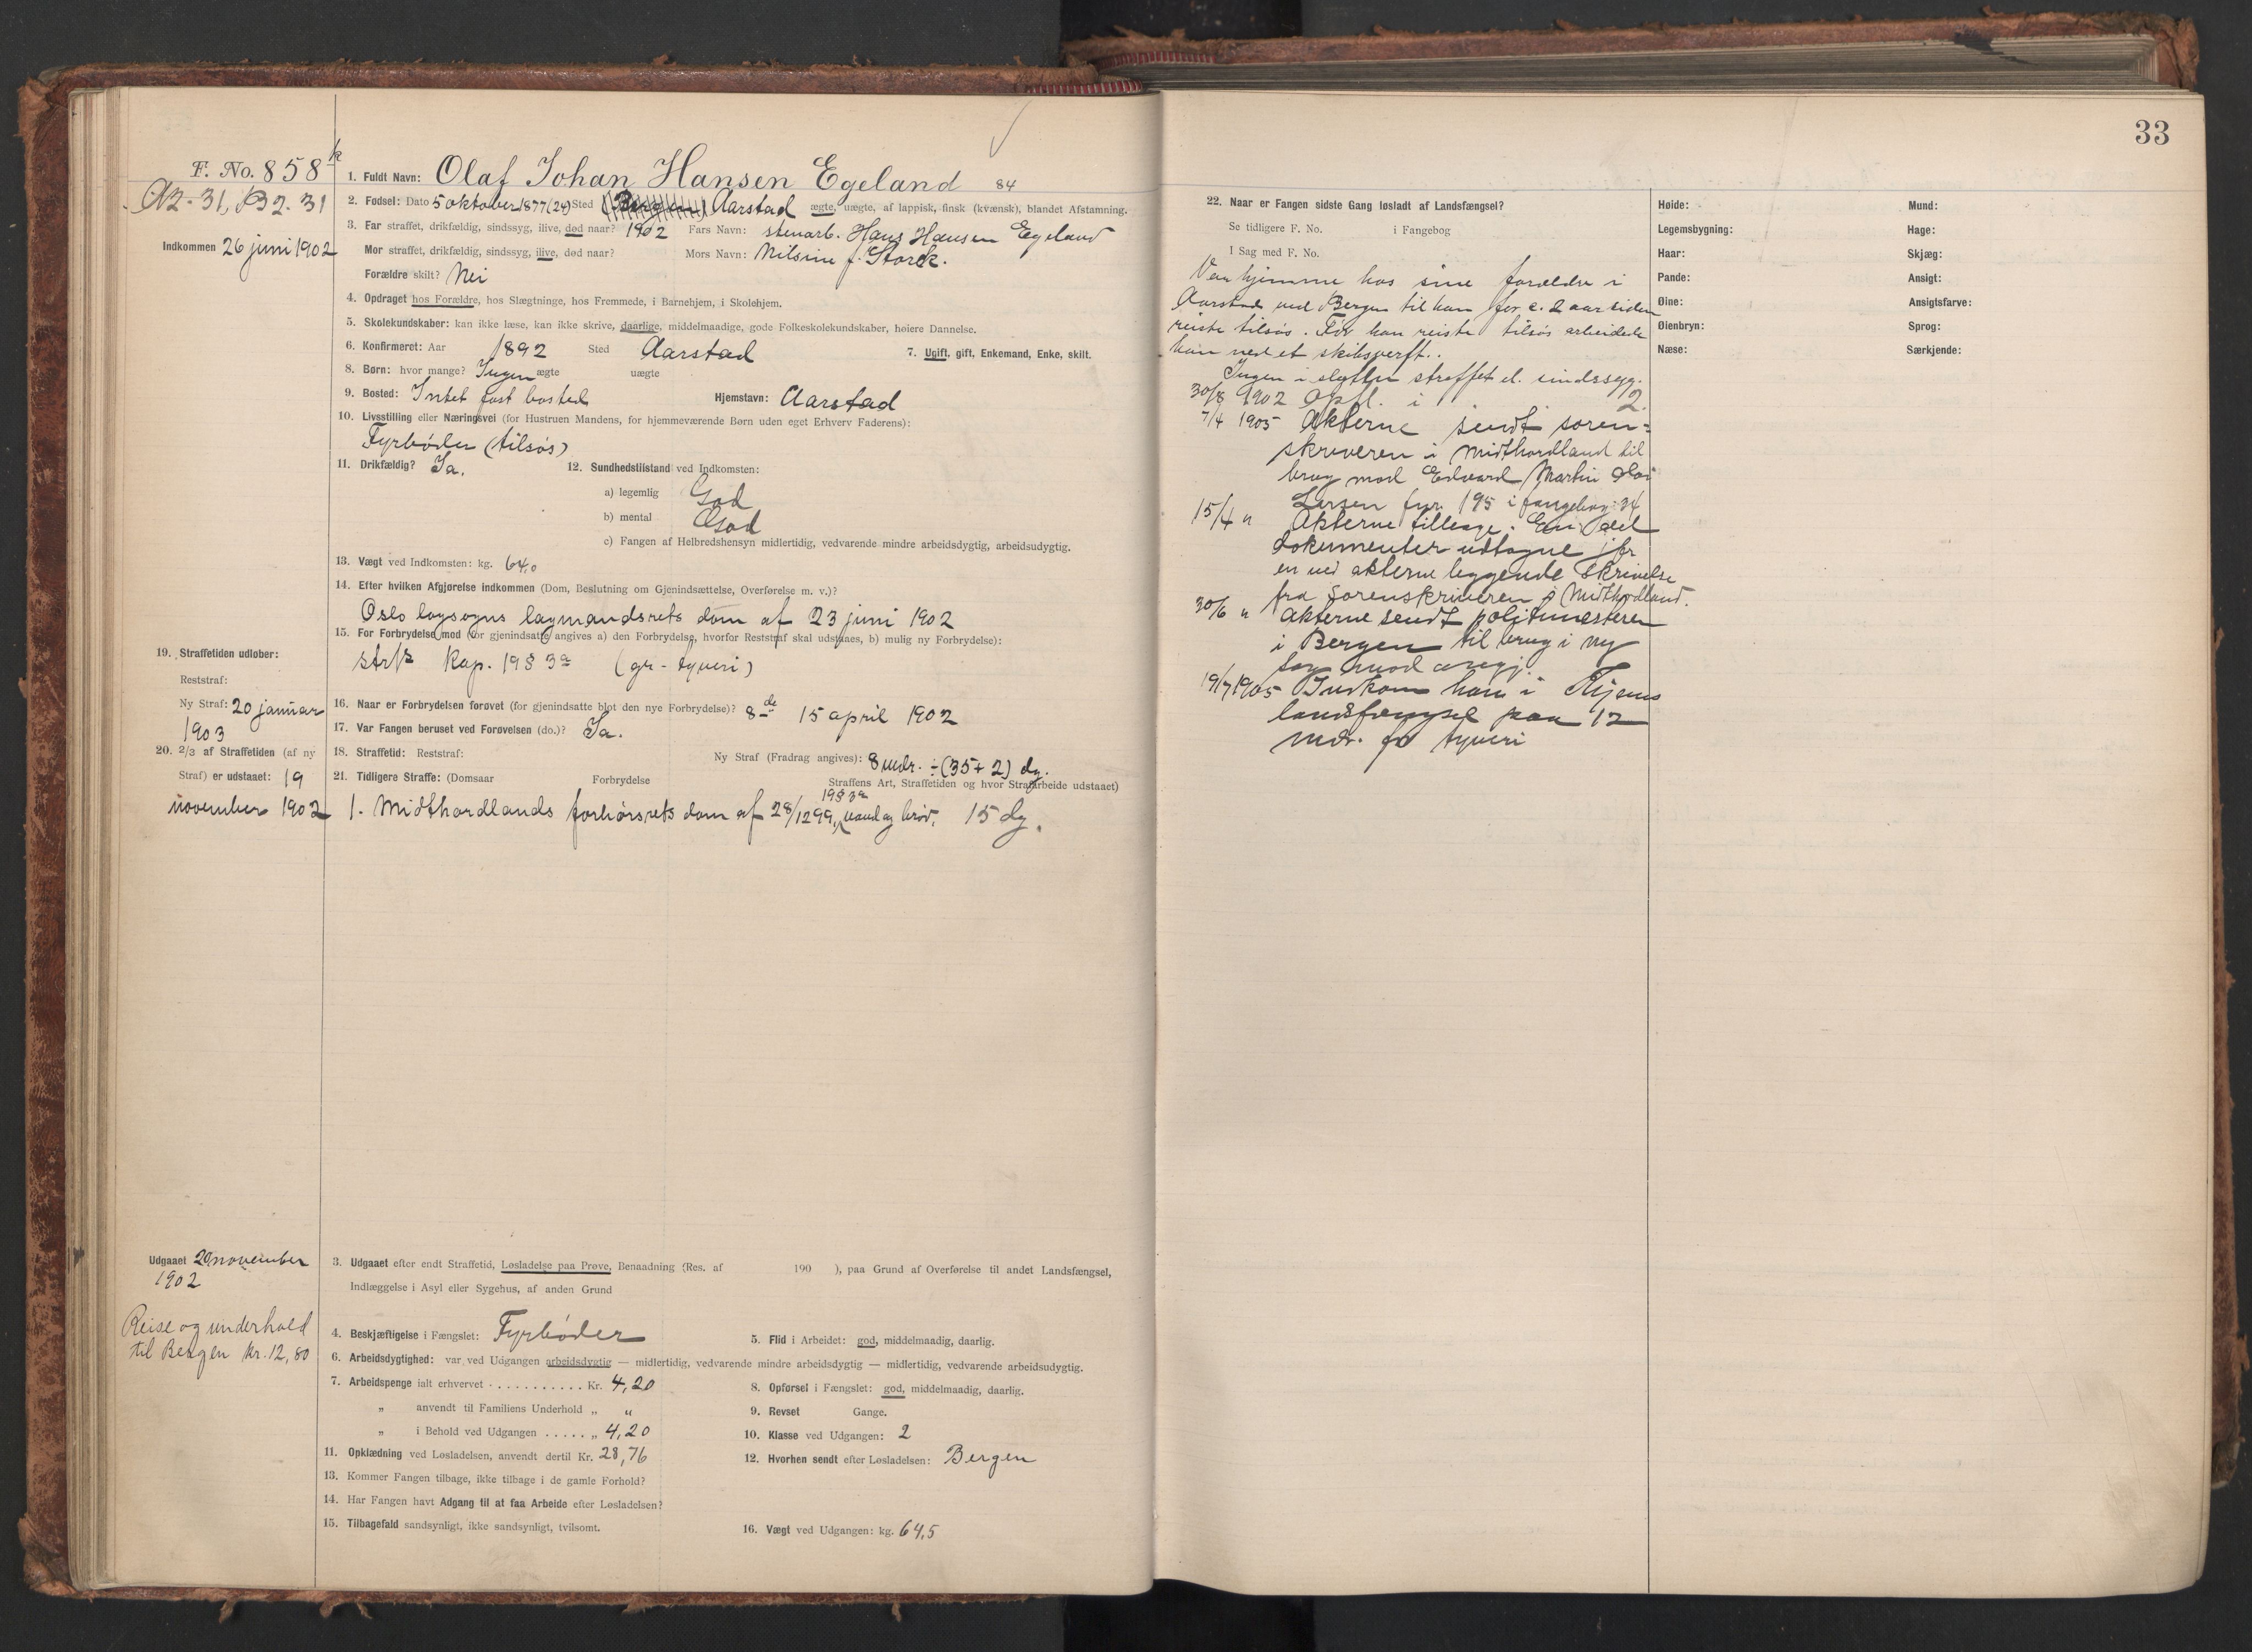 33
F. No. 858
A2. 31, B2. 31
Indkommen 26 juni 1902
1. Fuldt Navn: Olaf Johan Hansen Egeland 84
2. Fødsel: Dato 5 oktober 1877 (24) Sted (Bergen) Aarstad ægte, uægte, af lappisk, finsk (kvænsk), blandet Afstamning.
3. Far straffet, drikfældig, sindssyg, ilive, død naar? 1902 Fars Navn: stenarb. Hans Hansen Egeland
Mor straffet, drikfældig, sindssyg, ilive, død naar? Mors Navn: Nilsine f. Storck.
Forældre skilt? Nei
4. Opdraget hos Forældre, hos Slægtninge, hos Fremmede, i Barnehjem, i Skolehjem.
5. Skolekundskaber: kan ikke læse, kan ikke skrive, daarlige, middelmaadige, gode Folkeskolekundskaber, høiere Dannelse.
6. Konfirmeret: Aar 1892 Sted Aarstad 7. Ugift, gift, Enkemand, Enke, skilt.
8. Børn: hvor mange? Ingen ægte uægte
9. Bosted: Intet fast bosted Hjemstavn: Aarstad
10. Livsstilling eller Næringsvei (for Hustruen Mandens, for hjemmeværende Børn uden eget Erhverv Faderens):
Fyrbøder (tilsøs)
11. Drikfældig? Ja. 12. Sundhedstilstand ved Indkomsten:
a) legemlig God
b) mental God
c) Fangen af Helbredshensyn midlertidig, vedvarende mindre arbeidsdygtig, arbeidsudygtig.
13. Vægt ved Indkomsten: kg. 64,0
14. Efter hvilken Afgjørelse indkommen (Dom, Beslutning om Gjenindsættelse, Overførelse m. v.)?
Oslo lagsogns lagmandsrets dom af 23 juni 1902
15. For Forbrydelse mod (for gjenindsatte angives a) den Forbrydelse, hvorfor Reststraf skal udstaaes, b) mulig ny Forbrydelse):
strl's kap. 19 § 3a (gr- tyveri)
19. Straffetiden udløber:
Reststraf:
Ny Straf: 20 januar
1903
16. Naar er Forbrydelsen forøvet (for gjenindsatte blot den nye Forbrydelse)? 8de 15 april 1902
17. Var Fangen beruset ved Forøvelsen (do.)? Ja.
20. 2/3 af Straffetiden (af ny
Straf) er udstaaet: 19
november 1902
18. Straffetid: Reststraf: Ny Straf (Fradrag angives): 8 mdr. ÷ (35+2) dg.
21. Tidligere Straffe: (Domsaar Forbrydelse Straffens Art, Straffetiden og hvor Strafarbeide udstaaet)
19 § 3a
1. Midthordlands forhørsrets dom af 28/12 99, vand og brød, 15 dg.
Udgaaet 20 november
1902
Reise og underhold
til Bergen kr. 12,80
3. Udgaaet efter endt Straffetid, Løsladelse paa Prøve, Benaadning (Res. af 190 ), paa Grund af Overførelse til andet Landsfængsel,
Indlæggelse i Asyl eller Sygehus, af anden Grund
4. Beskjæftigelse i Fængslet: Fyrbøder 5. Flid i Arbeidet: god, middelmaadig, daarlig.
6. Arbeidsdygtighed: var ved Udgangen arbeidsdygtig — midlertidig, vedvarende mindre arbeidsdygtig — midlertidig, vedvarende arbeidsudygtig.
7. Arbeidspenge ialt erhvervet . . . . . . . . . . . Kr. 4,20 8. Opførsel i Fængslet: god, middelmaadig, daarlig.
„ anvendt til Familiens Underhold „ „ 9. Revset Gange.
„ i Behold ved Udgangen . . . . . „ 4,20 10. Klasse ved Udgangen: 2
11. Opklædning ved Løsladelsen, anvendt dertil Kr. 28,76 12. Hvorhen sendt efter Løsladelsen: Bergen
13. Kommer Fangen tilbage, ikke tilbage i de gamle Forhold?
14. Har Fangen havt Adgang til at faa Arbeide efter Løsladelsen?
15. Tilbagefald sandsynligt, ikke sandsynligt, tvilsomt. 16. Vægt ved Udgangen: kg. 64,5
22. Naar er Fangen sidste Gang løsladt af Landsfængsel?
Se tidligere F. No. i Fangebog
I Sag med F. No.
Var hjemme hos sine forældre i
Aarstad ved Bergen til han for c. 2 aar siden
reiste tilsøs. Før han reiste tilsøs arbeidede
han ved et skibsverft.
Ingen i slegten straffet el. sindssyg.
30/8 1902 Opfl. i 2.
7/4 1905 Akterne sendt soren-
skriveren i Midthordland til
brug mod Edvard Martin
Larsen fnr. 195 i fangebog 34
15/4 " Akterne tilbage. En del
dokumenter udtagne jfr
en ved akterne liggende skrivelse
fra sorenskriveren i Midthordland.
30/6 " Akterne sendt politimesteren
i Bergen til brug i ny
sag mod
19/7 1905 Indkom han i
landsfængsel paa 12
mdr. for tyveri
Høide: Mund:
Legemsbygning: Hage:
Haar: Skjæg:
Pande: Ansigt:
Øine: Ansigtsfarve:
Øienbryn: Sprog:
Næse: Særkjende: